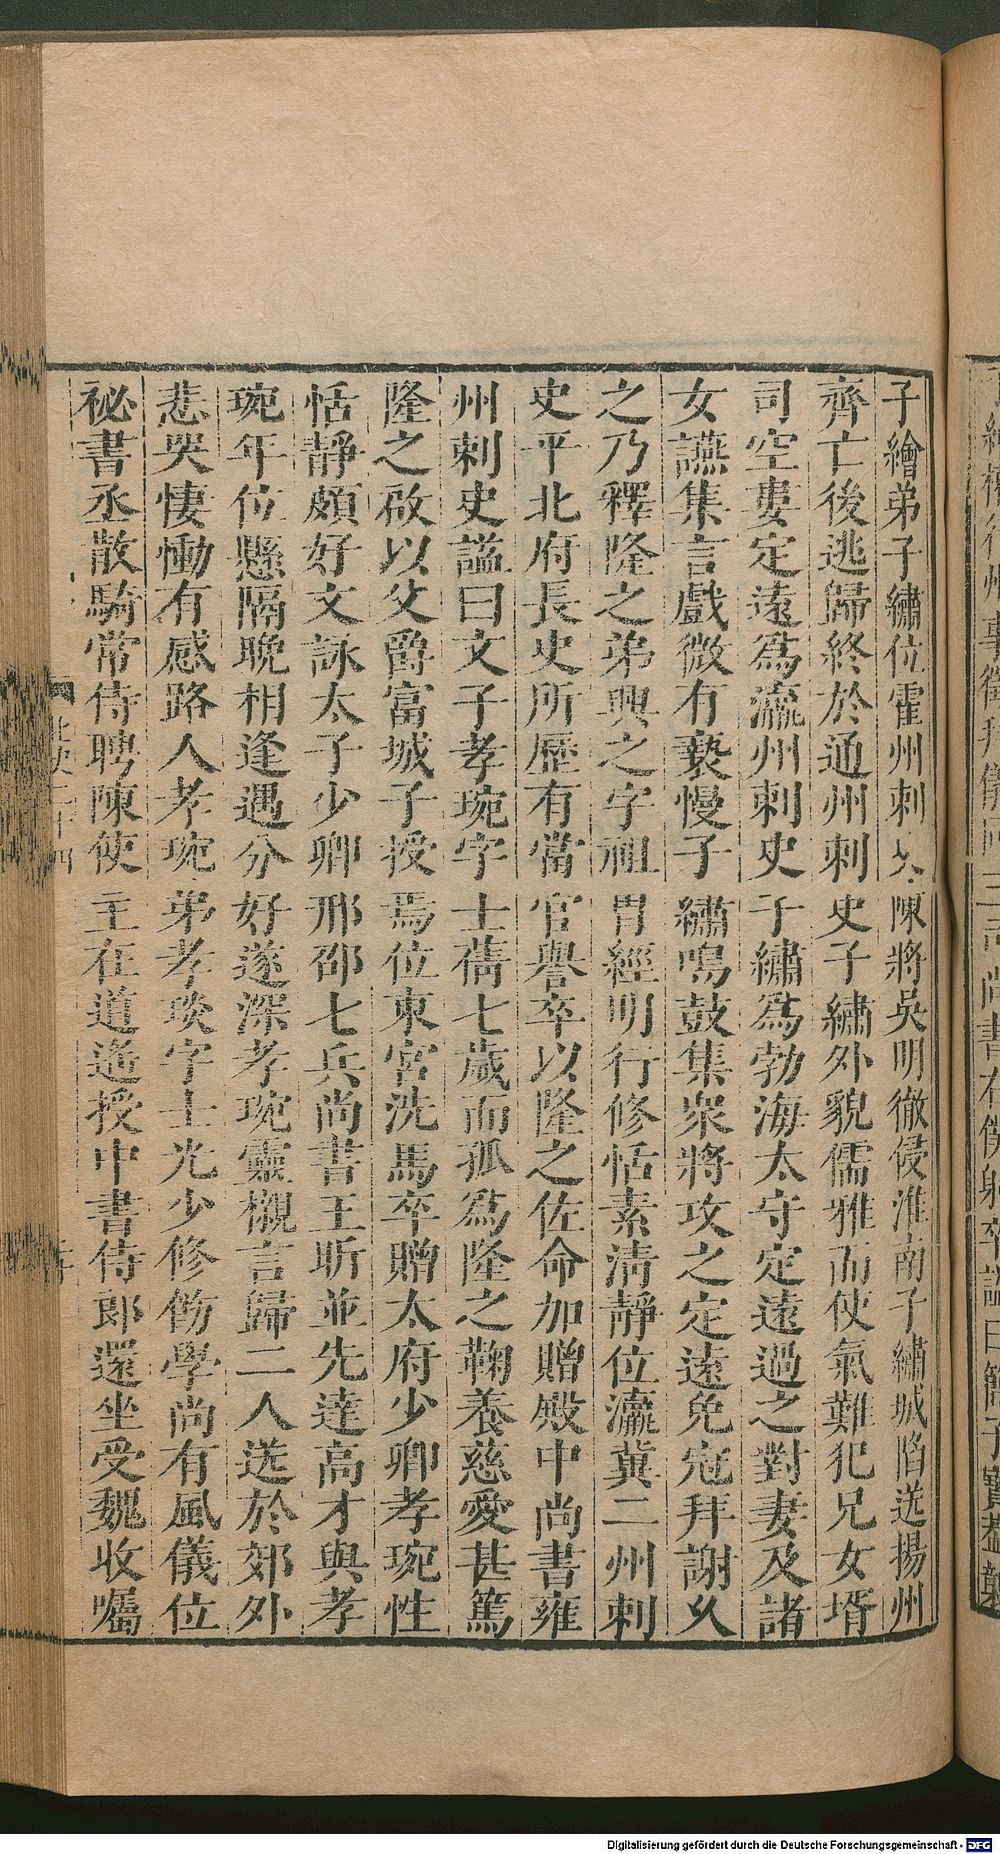 子繪弟子繡位霍州刺史陳將吳明徹侵淮南子繡城陷送揚州
齊亡後逃歸終於通州刺史子繡外貌儒雅而俠氣難犯兄女壻
司空婁定遠爲瀛州刺史子繡爲勃海太守定遠過之對妻及諸
女讌集言戲微有褻慢子繡鳴鼓集衆將攻之定遠免冠拜謝久
之乃釋隆之弟興之字祖冑經明行修恬素淸靜位瀛冀二州刺
史平北府長史所歷有當官譽卒以隆之佐命加贈殿中尚書雍
州刺史諡曰文子孝琬字士蒨七歲而孤爲隆之鞠養慈愛甚篤
隆之啟以父爵富城子授焉位東宮洗馬卒贈太府少卿孝琬性
恬靜頗好文詠太子少卿邢邵七兵尚書王昕並先達高才與孝
琬年位懸隔晚相逢遇分好遂深孝琬靈櫬言歸二人送於郊外
悲哭悽慟有感路人孝琬弟孝琰字士光少修飭學尚有風儀位
祕書丞散騎常侍聘陳使主在道遙授中書侍郎還坐受魏收囑
Digitalisierung gefördert durch die Deutsche Forschungsgemeinschaft - DFG